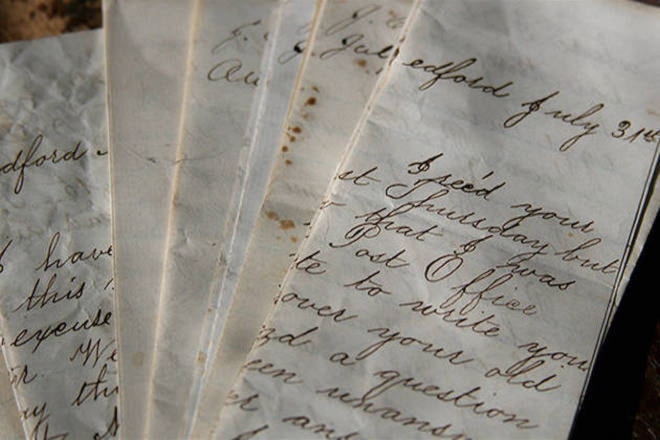 dford
I have
this
excuse
We
Au
J. J.
Jul
edford July 31st
I rec'd your
st Thursday but
that I was
Post Office
te to write you
over your old
a question
een unans